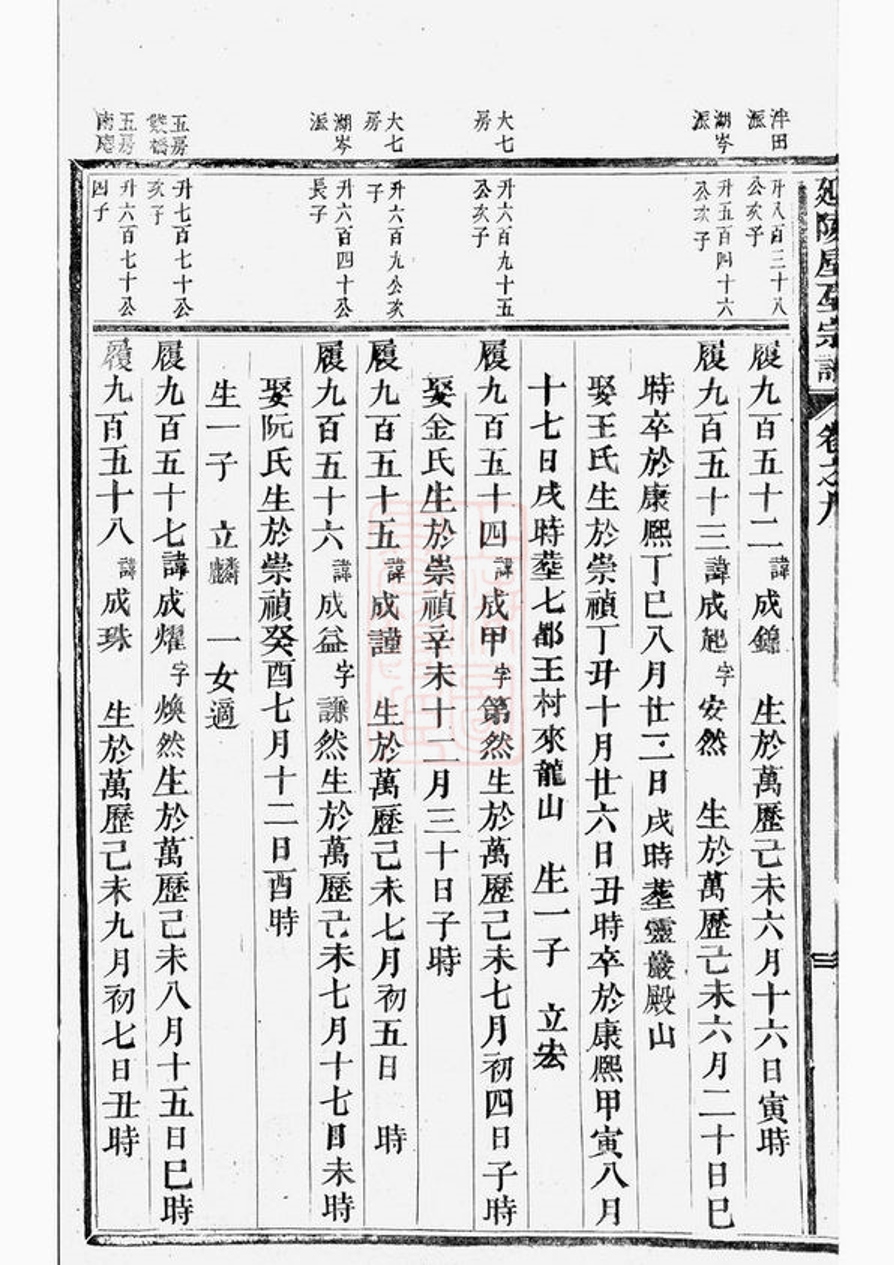 延陵屋巫宗譜 卷之九 三
泮田派
升八百三十八公次子
履九百五十二 諱成錦 生於萬歷己未六月十六日寅時
湖岑派
升五百四十六公次子
履九百五十三諱成起字安然 生於萬歷己未六月二十日巳
時卒於康熙丁巳八月廿三日戌時塟靈巖殿山
娶王氏生於崇禎丁丑十月廿六日丑時卒於康熙甲寅八月
十七日戌時塟七都王村來龍山 生一子 立宏
大七房
升六百九十五公次子
履九百五十四諱成甲字第然生於萬歷己未七月初四日子時
娶金氏生於崇禎辛未十二月三十日子時
大七房
升六百九公次子
履九百五十五諱成謹 生於萬歷己未七月初五日 時
湖岑派
升六百四十公長子
履九百五十六諱成益字謙然生於萬歷己未七月十七日未時
娶阮氏生於崇禎癸酉七月十二日酉時
生一子 立麟 一女適
五房雙橋
升七百七十公次子
履九百五十七諱成燿字煥然生於萬歷己未八月十五日巳時
五房南庭
升六百七十公四子
履九百五十八諱成珠 生於萬歷己未九月初七日丑時